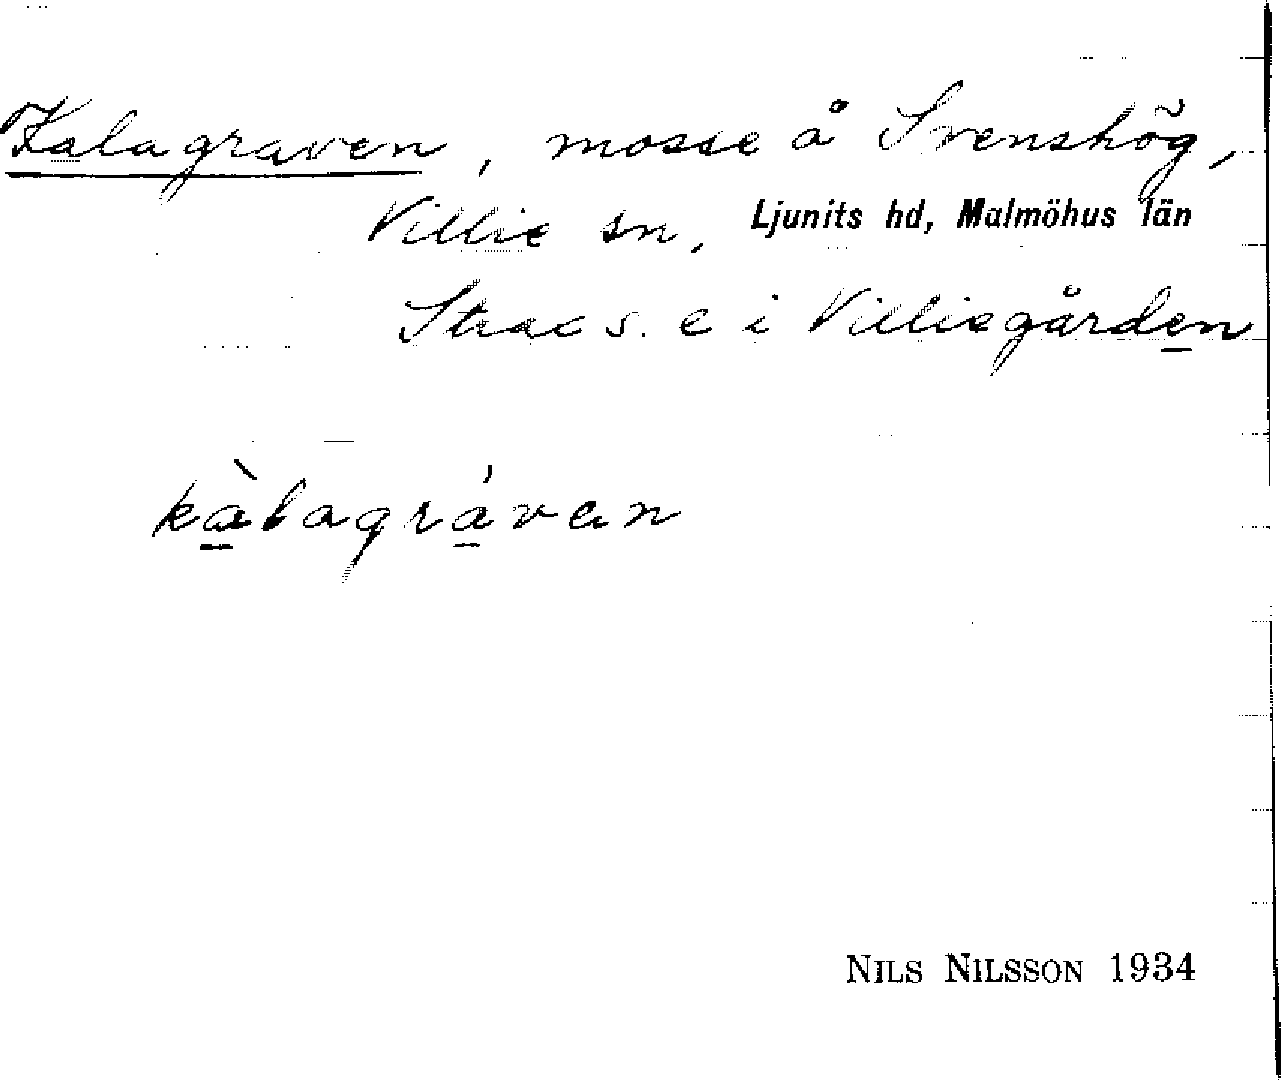 Kalagraven, mosse å Svenshög,
Villie sn, Ljunits hd, Malmöhus län
Strax s. e i Villiegården
kàlagrávan
NILS NILSSON 1934